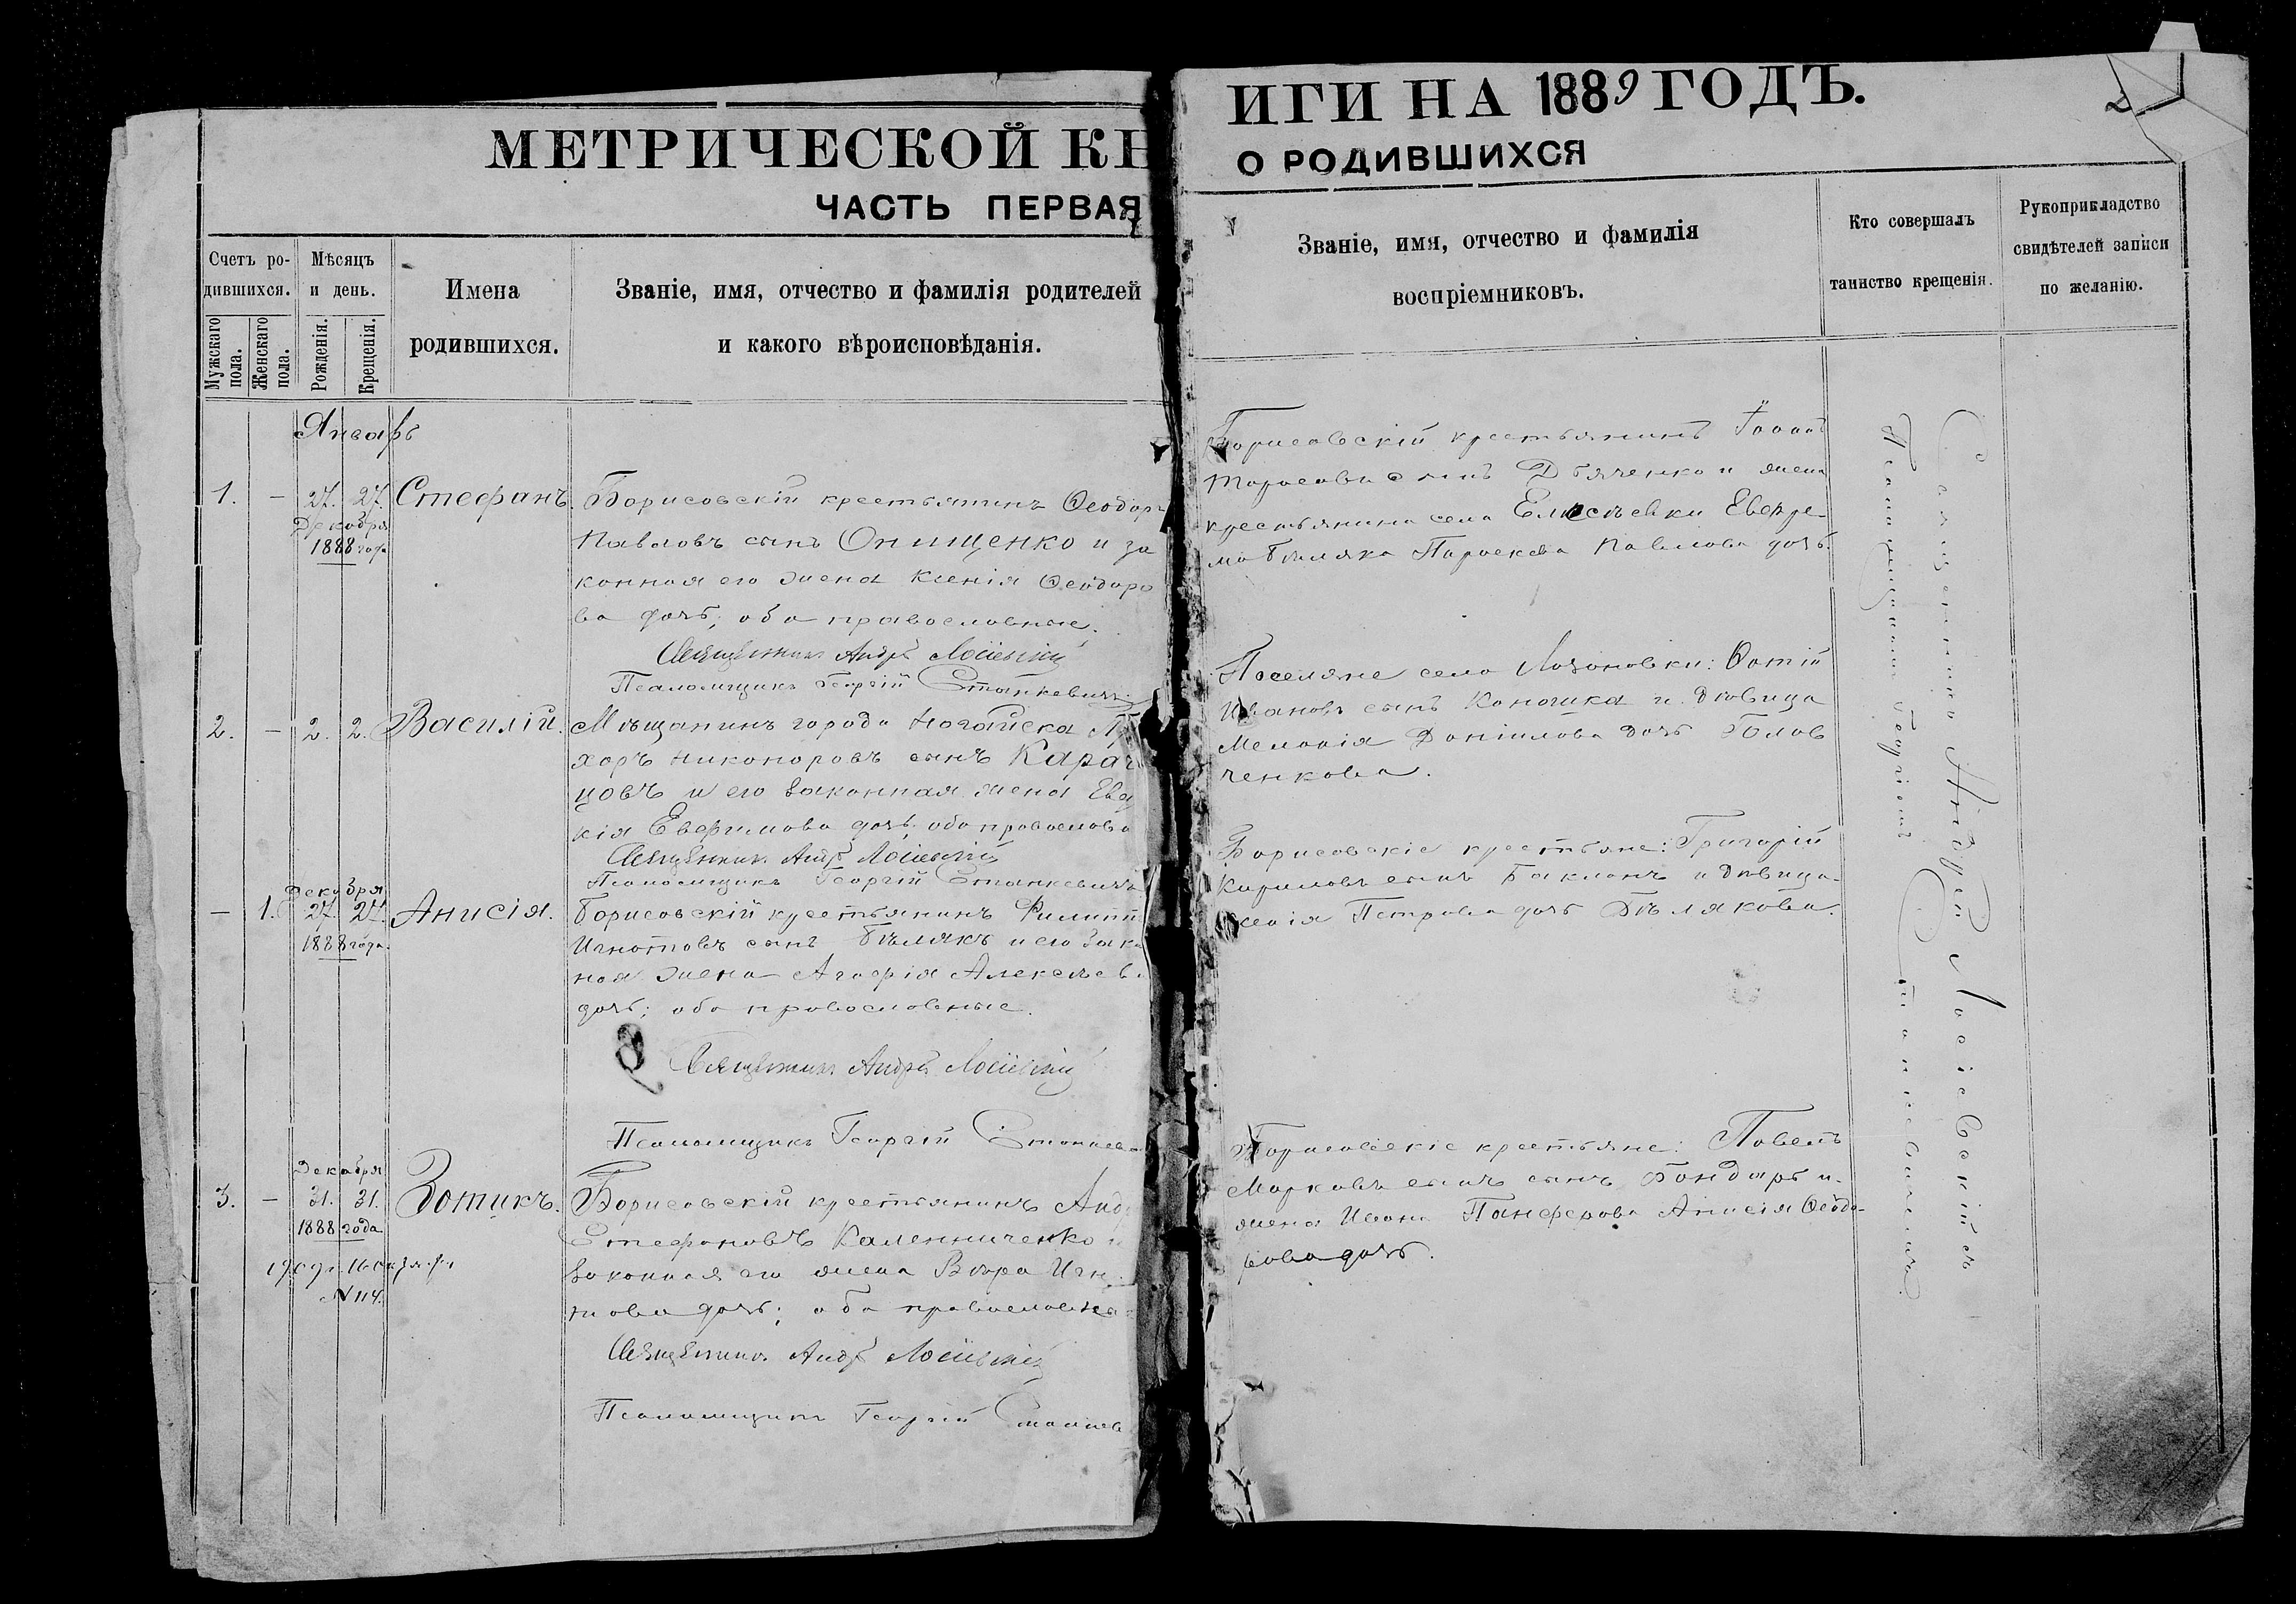 МЕТРИЧЕСКОЙ КН
ЧАСТЬ ПЕРВАЯ
Счетъ ро-
дившихся.
Мужскаго
пола.
Женскаго
пола.
Мѣсяцъ
и день.
Рожденія.
Крещенія.
Имена
родившихся.
Званіе, имя, отчество и фамилія родителей
и какого вѣроисповѣданія.
Январь
1. — 27. 27. Стефанъ.
Декабря
1888 года
Борисовскій крестьянинъ Ѳеодоръ
Павловъ сынъ Онищенко и за
конная его жена Ксенія Ѳеодоро
ва дочь; оба православные.
Священникъ Андрей Лосіевскій
Псаломщикъ Георгій Станкевичъ
2. — 2. 2. Василій.
Мѣщанинъ города Ногайска
хоръ Никоноровъ сынъ
цовъ и его законная жена
кія Евфимова дочь; оба православн
Священникъ Андрей Лосіевскій
Псаломщикъ Георгій Станкевичъ
Декабря
— 1. 27. 27. Анисія.
1888 года
Борисовскій крестьянинъ Филипп
Игнатовъ сынъ Бѣлякъ и его зако
ная жена Агафія Алексѣева
дочь; оба православные.
Священникъ Андрей Лосіевскій
Псаломщикъ Георгій Станкев
Декабря
3. — 31. 31. Зотикъ.
1888 года
1909 г. 16 октября
№ 114.
Борисовскій крестьянинъ Анд
Стефановъ Каленниченко и
законная его жена Вѣра Игн
това дочь; оба православны
Священникъ Андрей Лосіевскій
Псаломщикъ Георгій Станкев
ИГИ НА 1889 ГОДЪ.
2
О РОДИВШИХСЯ
Званіе, имя, отчество и фамилія
воспріемниковъ.
Кто совершалъ
таинство крещенія.
Рукоприкладство
свидѣтелей записи
по желанію.
Борисовскій крестьянинъ Іоаннъ
Тарасовъ сынъ Дьяченко и жена
крестьянина села Елисѣевки Евфре-
ма Бѣляка Параскева Павлова дочь.
Поселяне села Лозоновки: Фотій
Ивановъ сынъ Коношка и дѣвица
Меланія Даніилова дочь Голов
ченкова.
Борисовскіе крестьяне: Григорій
Кириловъ сынъ Бакланъ и дѣвица
Петрова дочь Бѣлякова.
Борисовскіе крестьяне: Павелъ
Марковъ сынъ сынъ Бондарь и
жена Ивана Панферова Анисія Ѳеодо-
рова дочь.
Священникъ Андрей Лосіевскій съ
Псаломщикомъ Георгіемъ Станкевичемъ.